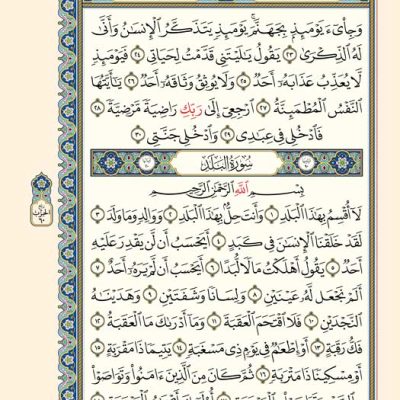 وَجِا۟يٓءَ يَوْمَئِذٍۭ بِجَهَنَّمَ ۚ يَوْمَئِذٍ يَتَذَكَّرُ ٱلْإِنسَٰنُ وَأَنَّىٰ
لَهُ ٱلذِّكْرَىٰ ٢٣ يَقُولُ يَٰلَيْتَنِى قَدَّمْتُ لِحَيَاتِى ٢٤ فَيَوْمَئِذٍ
لَّا يُعَذِّبُ عَذَابَهُۥٓ أَحَدٌ ٢٥ وَلَا يُوثِقُ وَثَاقَهُۥٓ أَحَدٌ ٢٦ يَٰٓأَيَّتُهَا
ٱلنَّفْسُ ٱلْمُطْمَئِنَّةُ ٢٧ ٱرْجِعِىٓ إِلَىٰ رَبِّكِ رَاضِيَةً مَّرْضِيَّةً ٢٨
فَٱدْخُلِى فِى عِبَٰدِى ٢٩ وَٱدْخُلِى جَنَّتِى ٣٠
سُورَةُ ٱلْبَلَدِ
بِسْمِ ٱللَّهِ ٱلرَّحْمَٰنِ ٱلرَّحِيمِ
لَآ أُقْسِمُ بِهَٰذَا ٱلْبَلَدِ ١ وَأَنتَ حِلٌّۢ بِهَٰذَا ٱلْبَلَدِ ٢ وَوَالِدٍ وَمَا وَلَدَ ٣
لَقَدْ خَلَقْنَا ٱلْإِنسَٰنَ فِى كَبَدٍ ٤ أَيَحْسَبُ أَن لَّن يَقْدِرَ عَلَيْهِ
أَحَدٌ ٥ يَقُولُ أَهْلَكْتُ مَالًا لُّبَدًا ٦ أَيَحْسَبُ أَن لَّمْ يَرَهُۥٓ أَحَدٌ ٧
أَلَمْ نَجْعَل لَّهُۥ عَيْنَيْنِ ٨ وَلِسَانًا وَشَفَتَيْنِ ٩ وَهَدَيْنَٰهُ
ٱلنَّجْدَيْنِ ١٠ فَلَا ٱقْتَحَمَ ٱلْعَقَبَةَ ١١ وَمَآ أَدْرَىٰكَ مَا ٱلْعَقَبَةُ ١٢
فَكُّ رَقَبَةٍ ١٣ أَوْ إِطْعَٰمٌ فِى يَوْمٍ ذِى مَسْغَبَةٍ ١٤ يَتِيمًا ذَا مَقْرَبَةٍ ١٥
أَوْ مِسْكِينًا ذَا مَتْرَبَةٍ ١٦ ثُمَّ كَانَ مِنَ ٱلَّذِينَ ءَامَنُوا۟ وَتَوَاصَوْا۟